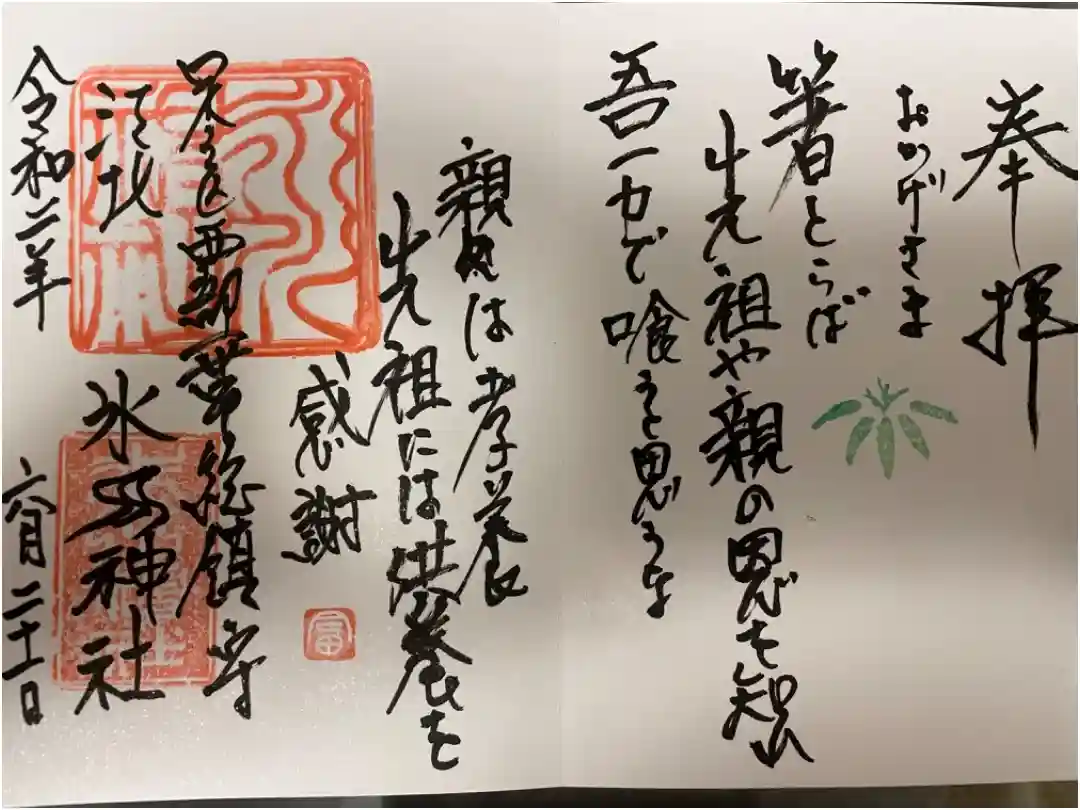 奉拝
おかげさま
箸とらば
先祖や親の恩を知れ
吾一力で喰うと思うな
親には孝養
先祖には供養を
感謝
足立区西部一帯総鎮守
江北 氷川神社
令和二年 六月二十一日